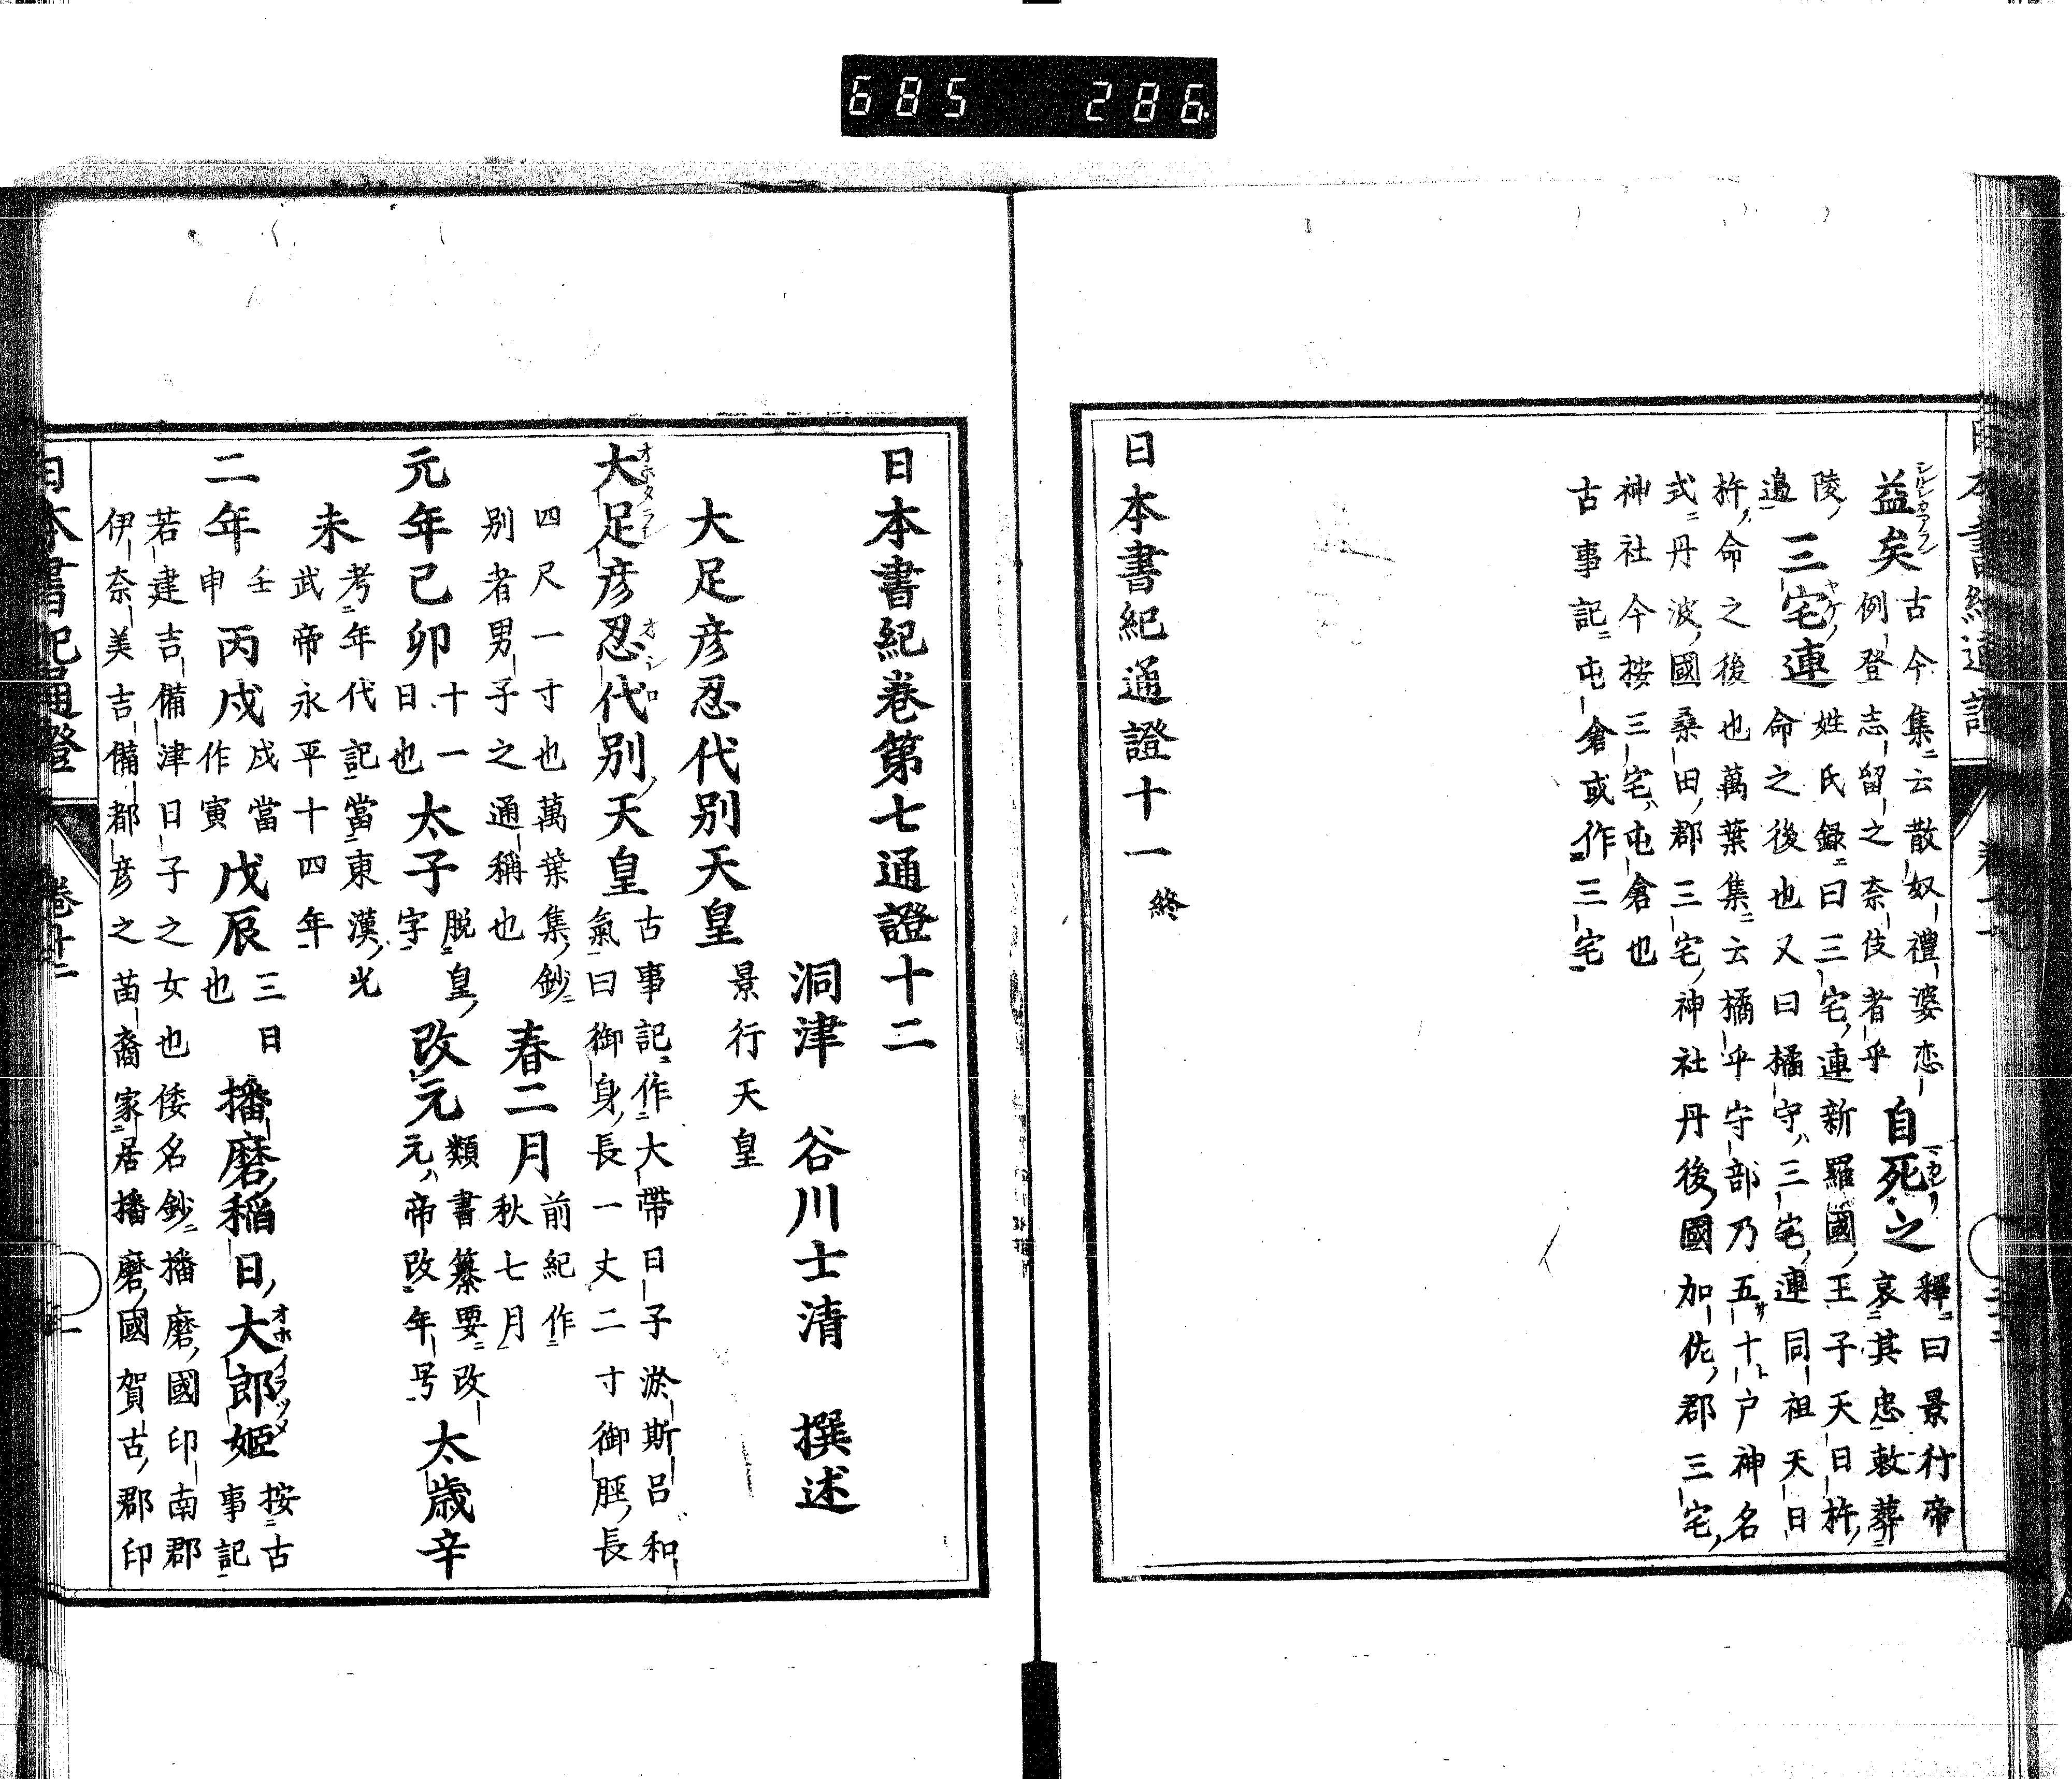 685 286
益矣古今集云散奴禮婆恋例登志留之奈伎者乎自死之釋曰景行帝哀其忠敕葬
陵邊三宅連姓氏録曰三宅連新羅國王子天日杵命之後也又曰橘守三宅連同祖天日
杵命之後也萬葉集云橘乎守部乃五十戶神名
式丹波國桑田郡三宅神社丹後國加佐郡三宅
神社今按三宅屯倉也
古事記屯倉或作三宅
日本書紀通證十一終
日本書紀卷第七通證十二
洞津 谷川士清 撰述
大足彦忍代別天皇 景行天皇
大足彦忍代別天皇古事記作大帶日子淤斯呂和氣曰御身長一丈二寸御脛長
四尺一寸也萬葉集鈔別者男子之通稱也春二月前紀作秋七月
元年己卯十一日也太子脱皇字改元類書纂要改元帝改年号太歳辛
未考年代記當東漢光武帝永平十四年
二年壬申丙戌戌當作寅戊辰三日也播磨稲日大郎姫按古事記
若建吉備津日子之女也倭名鈔播磨國印南郡
伊奈美吉備郡彦之苗裔家居播磨國賀古郡印
日本書紀通證 卷十二 一